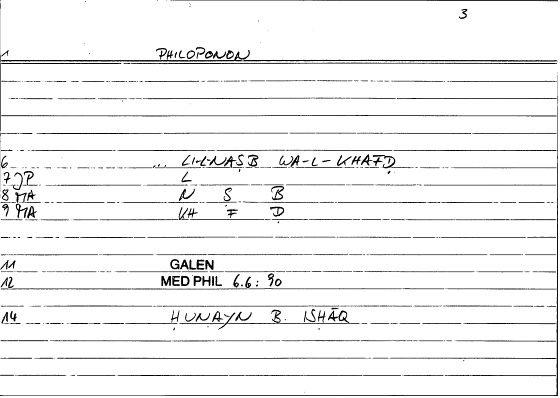 3
1 PHILOPONON
6 ... LI-L-NAṢB WA-L-KHAFḌ
7 JP L
8 MA N Ṣ B
9 MA KH F Ḍ
11 GALEN
12 MED PHIL 6.6: 90
14 ḤUNAYN B. ISḤĀQ